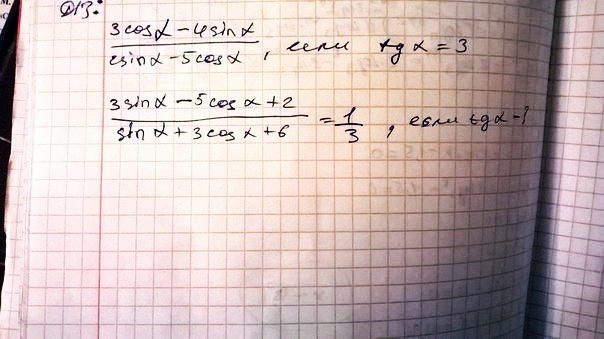 ДЗ:
3cosα − 4sinα / 2sinα − 5cosα , если tgα = 3
3sinα − 5cosα + 2 / sinα + 3cosα + 6 = 1/3 , если tgα − ?